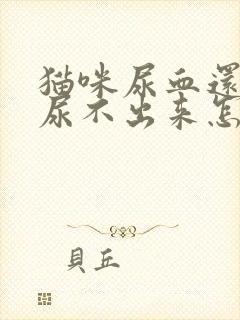 猫咪尿血還
尿不出来怎
貝丘